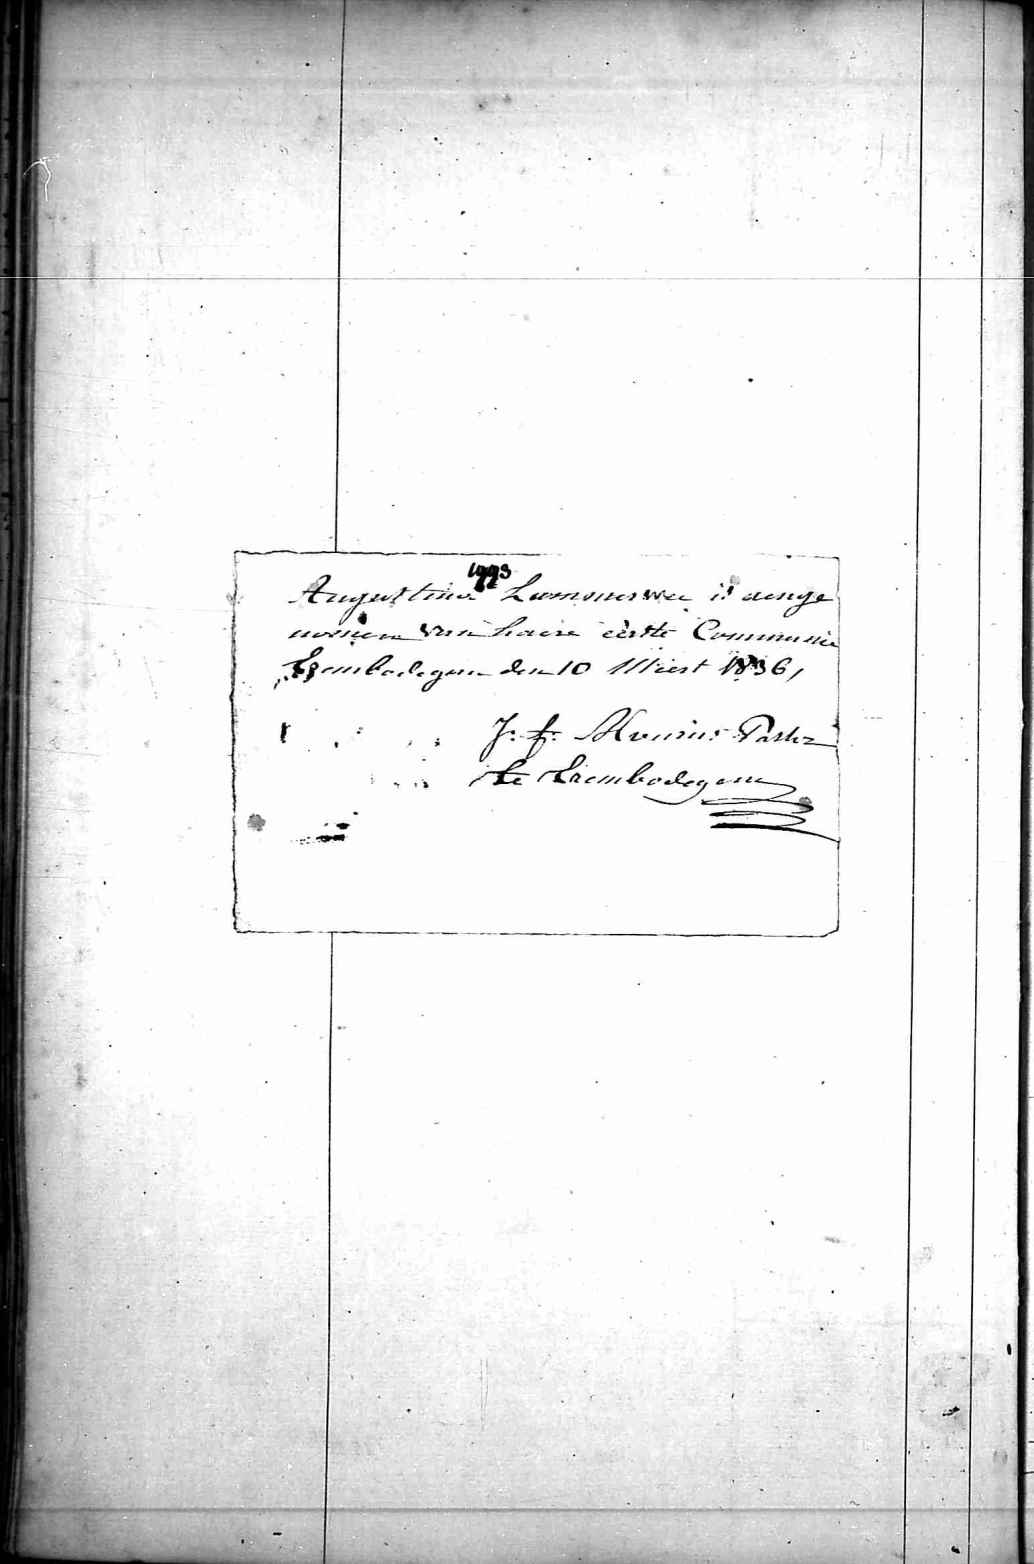 1993
Augustina Lammerwee is aenge
nomen van haere eerste Communie
Erembodegem den 10 Meert 1836,
J. f. Pastor
te Erembodegem